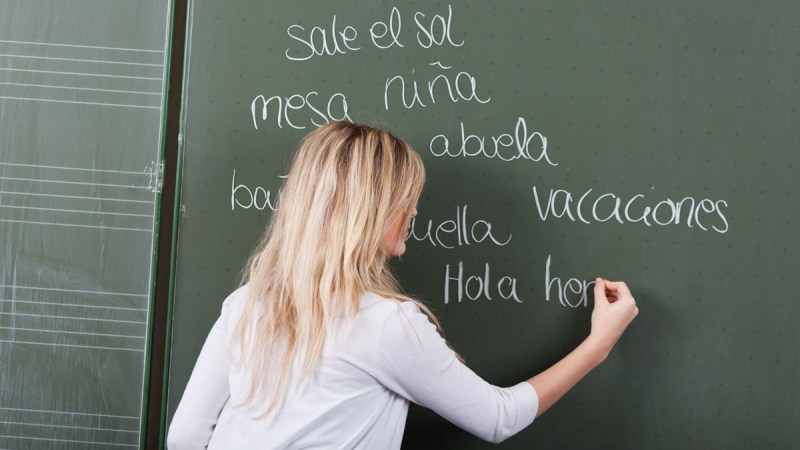 sale el sol
mesa niña
abuela
vacaciones
uella
Hola her